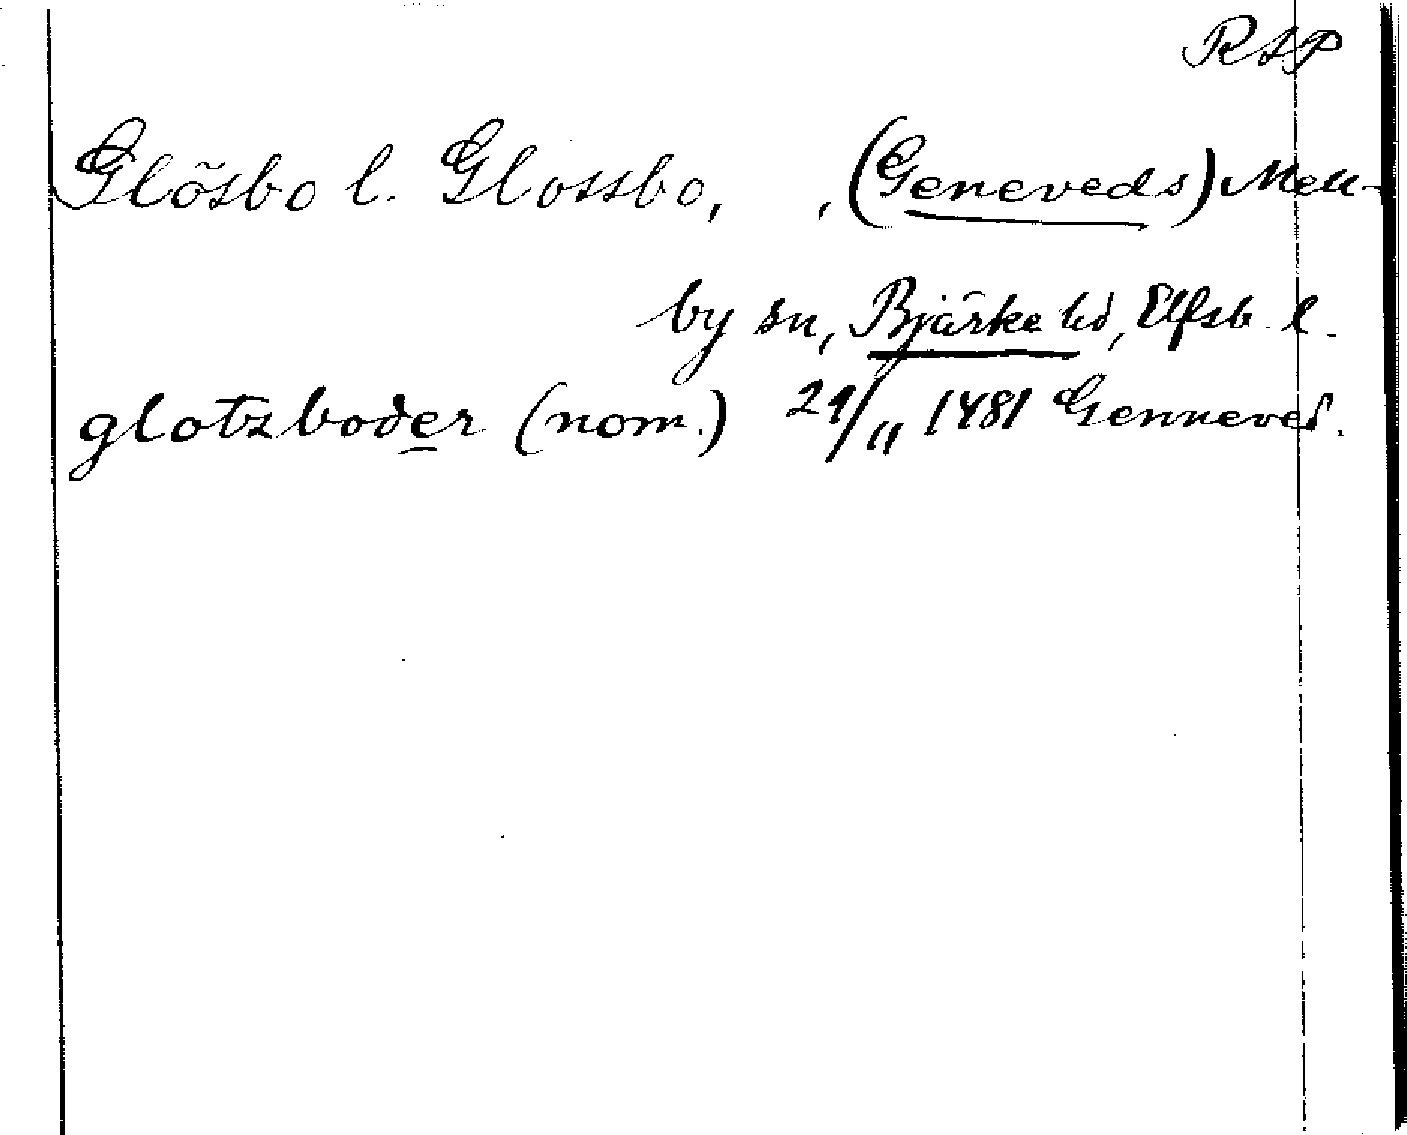 RAP
Glösbo l. Glossbo, , (Geneveds) Mell-
by sn, Bjärke hd, Elfsb. l.
glotzboder (nom.) 29/11 1481 Genneved.